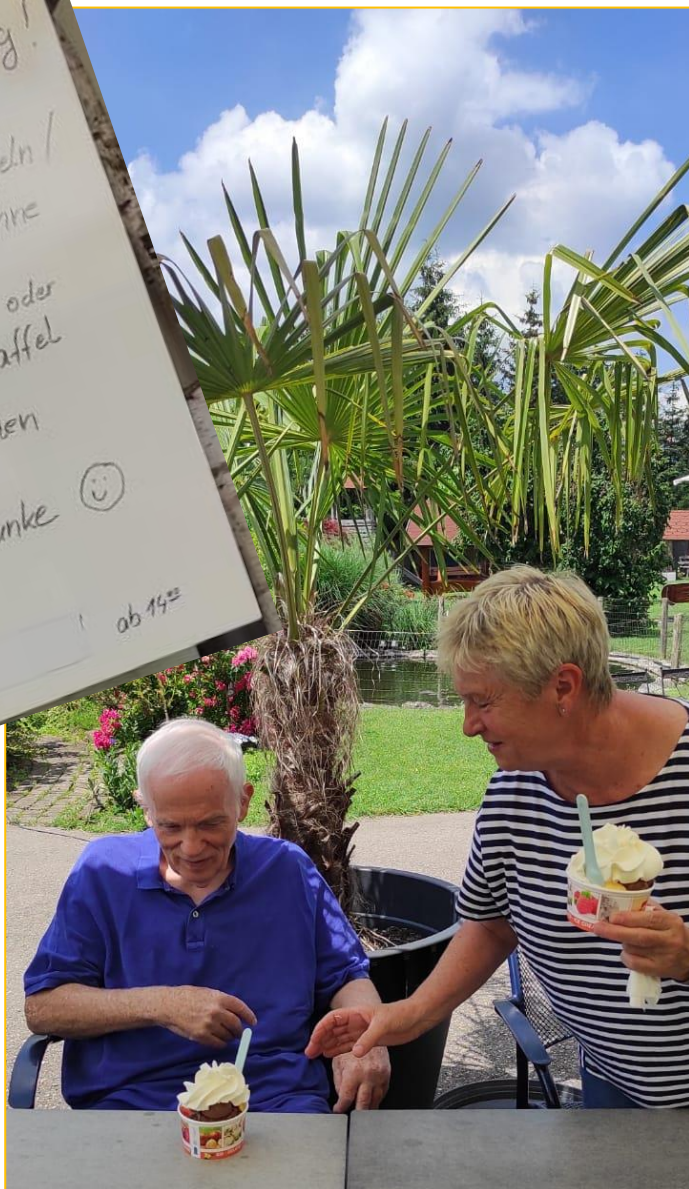 g!
eln /
hne
oder
affel
en
unke
ab 14⁰⁰